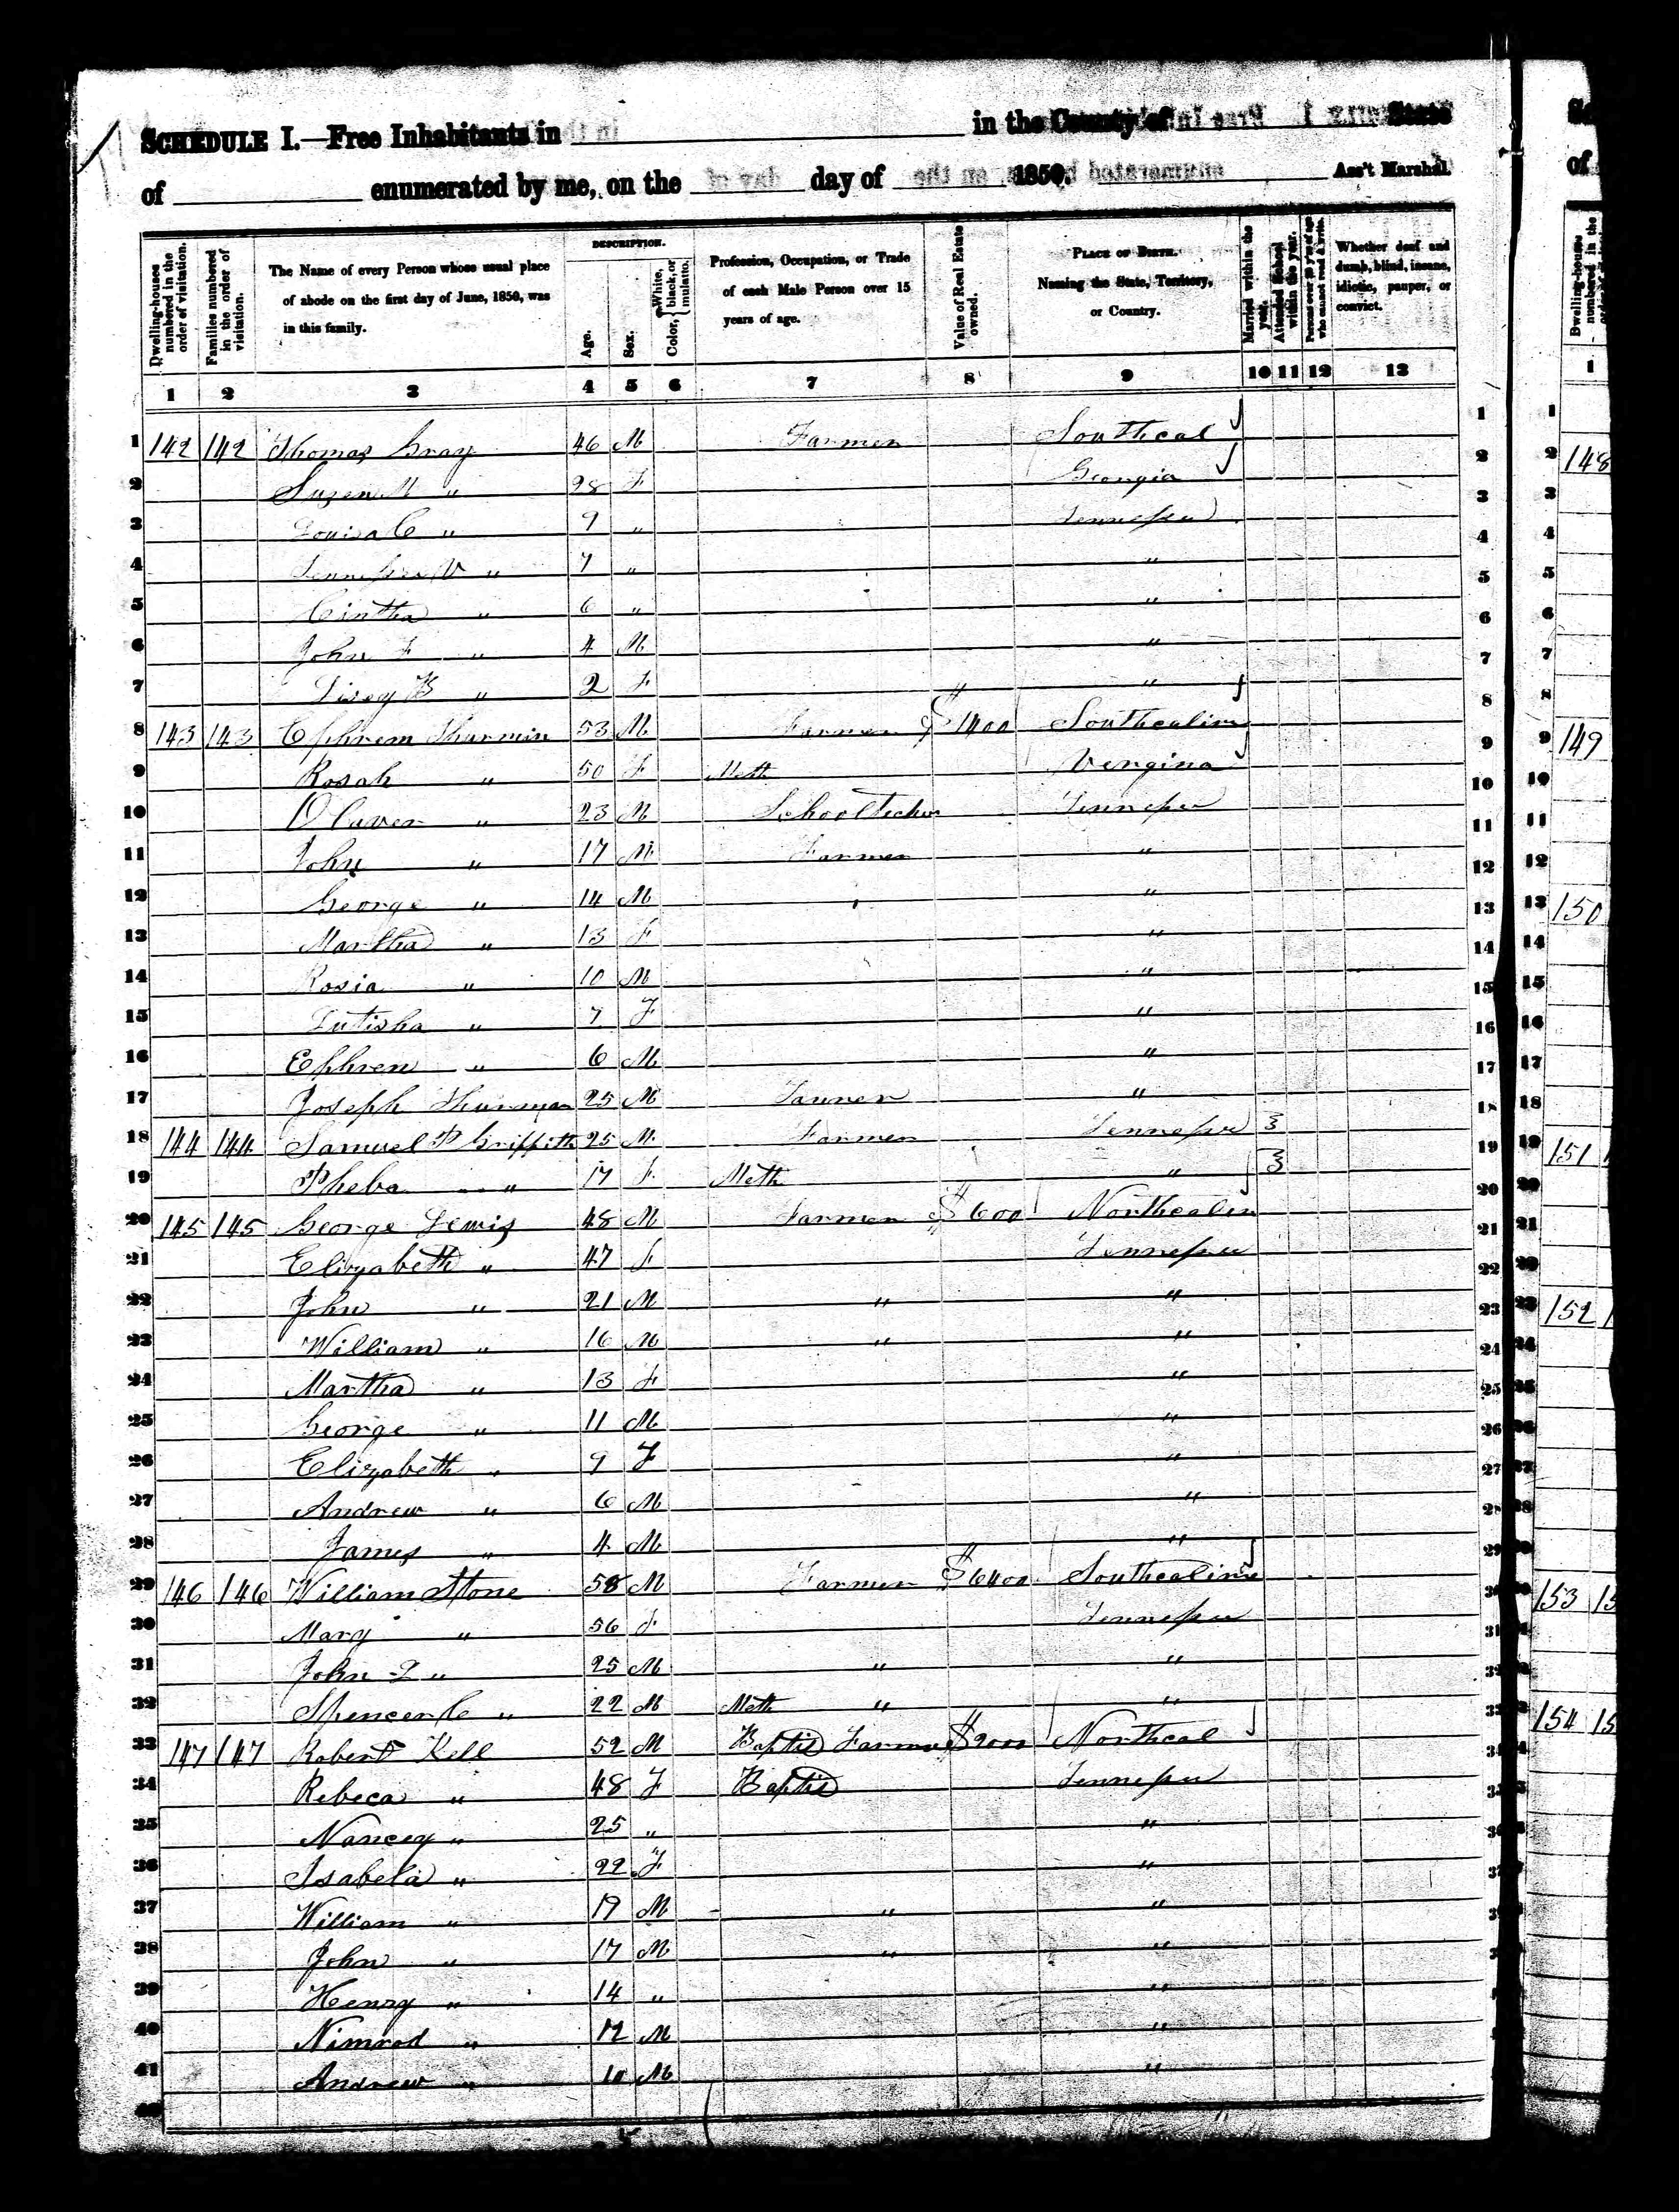 SCHEDULE I.—Free Inhabitants in in the County of State
of enumerated by me, on the day of 1850. Ass't Marshal.
Dwelling-houses numbered in the order of visitation.
Families numbered in the order of visitation.
The Name of every Person whose usual place of abode on the first day of June, 1850, was in this family.
DESCRIPTION.
Age.
Sex.
Color, { White, black, or mulatto.
Profession, Occupation, or Trade of each Male Person over 15 years of age.
Value of Real Estate owned.
PLACE OF BIRTH. Naming the State, Territory, or Country.
Married within the year.
Attended School within the year.
Persons over 20 y'rs of age who cannot read & write.
Whether deaf and dumb, blind, insane, idiotic, pauper, or convict.
1 2 3 4 5 6 7 8 9 10 11 12 13
1 142 142 Thomas Gray 46 M Farmer Southcal 1
2 Suzen M " 28 F Georgia 2
3 Louisa C " 9 " Tennessee 3
4 " 7 " " 4
5 Cintha " 6 " " 5
6 John F " 4 M " 6
7 " 2 F " 7
8 143 143 Ephrem Thurmin 53 M Farmer $1400 Southcalina 8
9 Rosah " 50 F Meth Vergina 9
10 Olaver " 23 M School Techer Tennessee 10
11 John " 17 M Farmer " 11
12 George " 14 M " 12
13 Martha " 13 F " 13
14 Rosia " 10 M " 14
15 Lutisha " 7 F " 15
16 Ephren " 6 M " 16
17 Joseph Thurman 25 M Tanner " 17
18 144 144 Samuel P Griffith 25 M Farmer Tennessee 3 18
19 Pheba " 17 F Meth " 3 19
20 145 145 George Lewis 48 M Farmer $600 Northcalin 20
21 Elizabeth " 47 F Tennessee 21
22 John " 21 M " " 22
23 William " 16 M " " 23
24 Martha " 13 F " 24
25 George " 11 M " 25
26 Elizabeth " 9 F " 26
27 Andrew " 6 M " 27
28 James " 4 M " 28
29 146 146 William Stone 58 M Farmer $6400 Southcalina 29
30 Mary " 56 F Tennessee
31 John L " 25 M " "
32 Spencer C " 22 M Meth " "
33 147 147 Robert Kell 52 M Baptis Farmer $2000 Northcal
34 Rebeca " 48 F Baptis Tennessee
35 Nancey " 25 " "
36 Isabela " 22 F "
37 William " 19 M " "
38 John " 17 M " "
39 Henry " 14 " "
40 Nimrod " 12 M "
41 Andrew " 10 M "
148
149
150
151
152
153
154